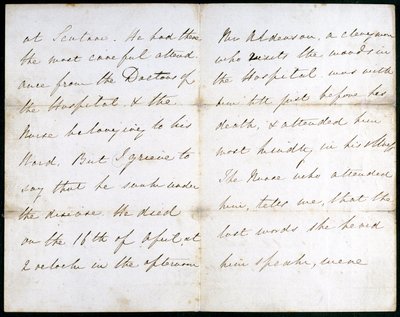 at Scutari. He had there
the most careful attend
ance from the Doctors of
the Hospital & the
Nurse belonging to his
Ward. But I grieve to
say that he sunk under
the disease. He died
on the 16th of April at
2 o'clock in the afternoon
Mr a clergyman
who visits the wards in
the Hospital was with
him till just before his
death, & attended him
most kindly in his illness
The Nurse who attended
him, tells me, that the
last words she heard
him speak, were